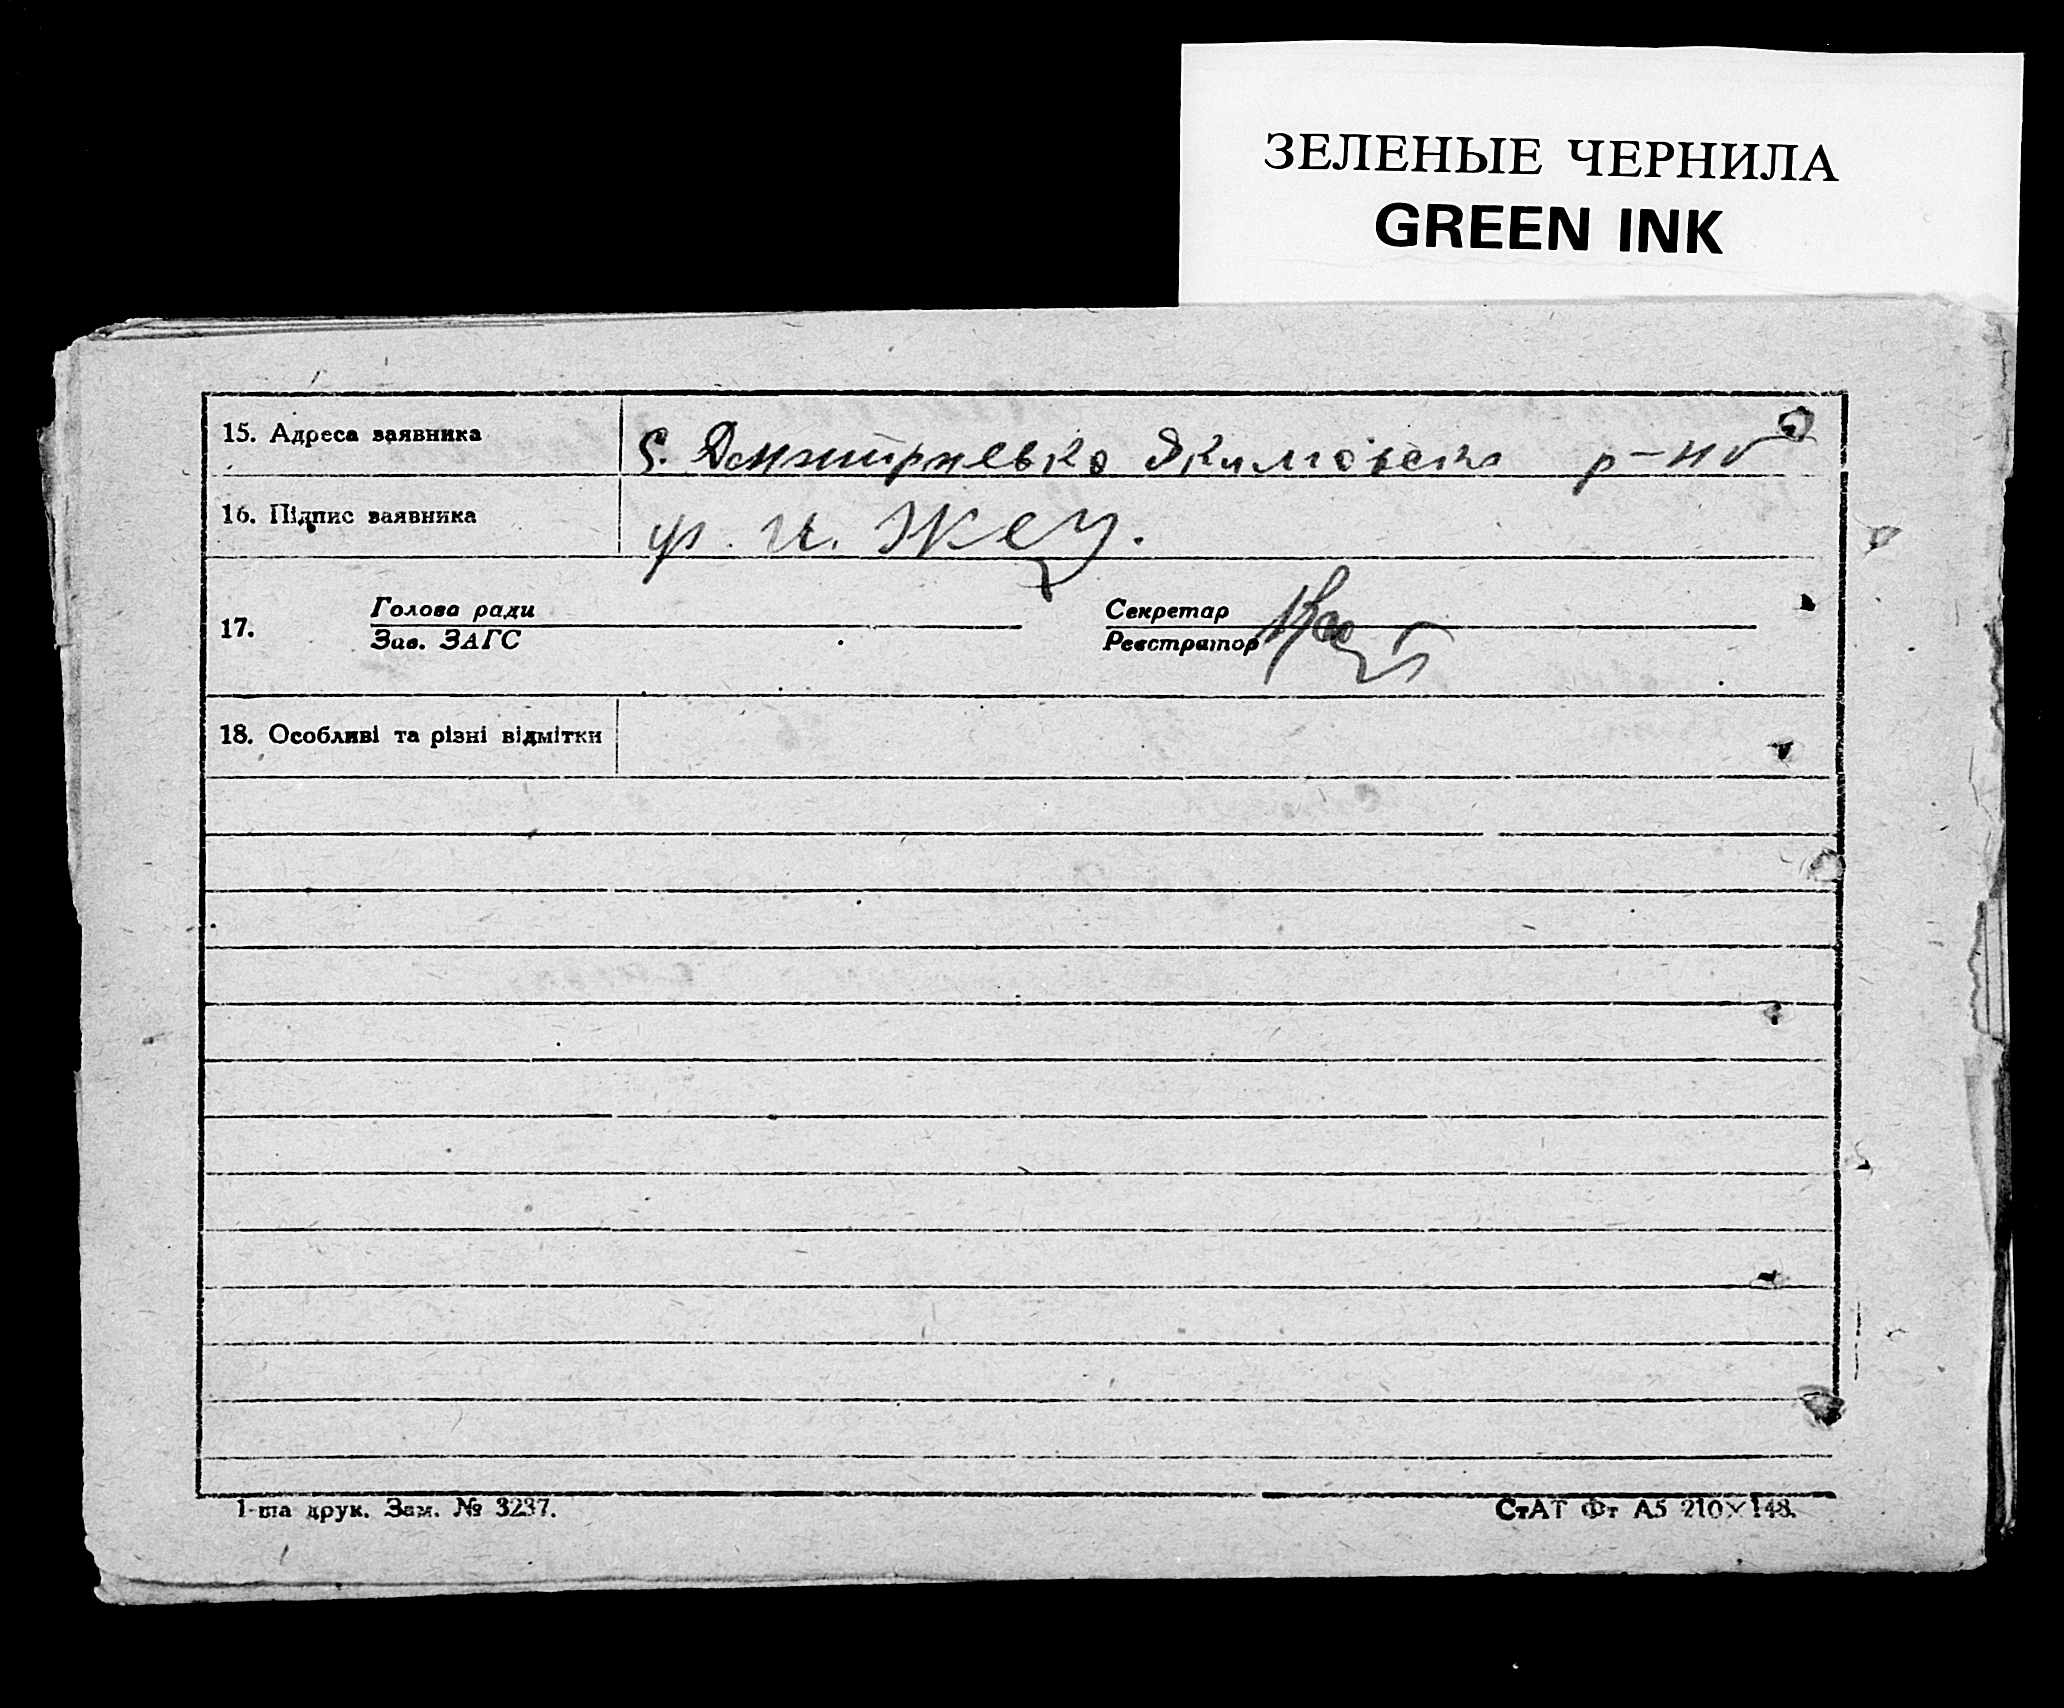 ЗЕЛЕНЫЕ ЧЕРНИЛА
GREEN INK
15. Адреса заявника
с. Дмитриевка Якимовска р-на
16. Підпис заявника
17. Голова ради
Зав. ЗАГС
Секретар
Реєстратор
18. Особливі та різні відмітки
1-ша друк. Зам. № 3237.
СтАТ Фт А5 210×148.